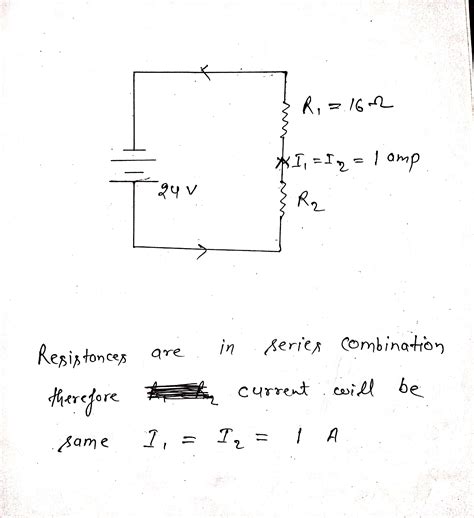 R₁ = 16 Ω
I₁ = I₂ = 1 amp
24 V
R₂
Resistances are in series combination
therefore current will be
same I₁ = I₂ = 1 A